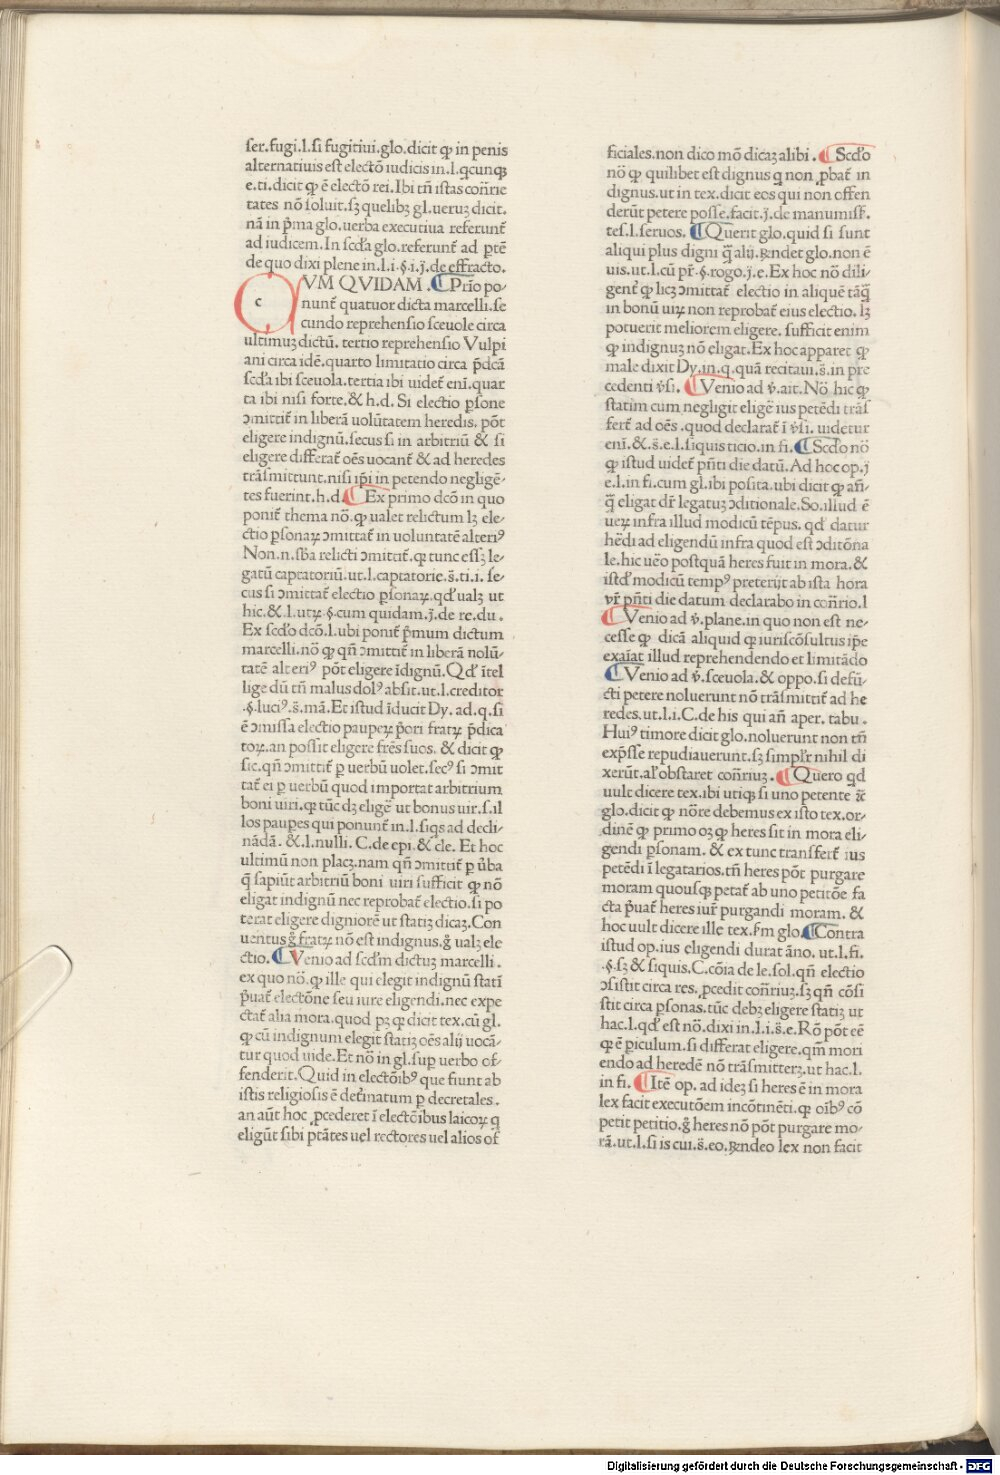 ſer.fugi.l.ſi fugitiui.glo.dicit ꝙ in penis
alternatiuis eſt electō iudicis in.l.qcunqꝫ
e.ti.dicit ꝙ ē electō rei.Ibi tñ iſtas coñrie
tates nō ſoluit.ſꝫ quelibꝫ gl.ueruꝫ dicit.
nā in p̄ma glo.uerba executiua referunt̄
ad iudicem.In ſcd̄a glo.referunt̄ ad p̱tē
de quo dixi plene in.l.i.§.i.j.de effracto.
c
VM QVIDAM. ¶Prīo po-
nunt̄ quatuor dicta marcelli.ſe
cundo reprehenſio ſceuole circa
ultimuꝫ dictū.tertio reprehenſio Vulpi
ani circa idē.quarto limitatio circa p̄dcā
ſcd̄a ibi ſceuola.tertia ibi uidet̄ enī.quar
ta ibi niſi forte.& h.d. Si electio p̱ſone
ↄmittit̄ in liberā uolūtatem heredis.pōt
eligere indignū.ſecus ſi in arbitriū & ſi
eligere differat̄ oēs uocant̄ & ad heredes
trāſmittunt.niſi ip̄i in petendo negligē-
tes fuerint.h.d. ¶Ex primo dcō in quo
ponit̄ thema nō.ꝙ ualet relictum lꝫ ele-
ctio p̱ſonaꝝ ↄmittat̄ in uoluntatē alteriꝰ
Non.n.ſb̄a relicti ↄmittit̄.ꝙ tunc eſſꝫ le-
gatū captatoriū.ut.l.captatorie.s̄.ti.i.ſe-
cus ſi ↄmittat̄ electio p̱ſonaꝝ.qd̓ ualꝫ ut
hic.&.l.utꝝ.§.cum quidam.j.de re.du.
Ex ſcd̓o dcō.l.ubi ponit̄ p̄mum dictum
marcelli.nō ꝙ qñ ↄmittit̄ in liberā nolū-
tatē alteriꝰ pōt eligere īdignū.Qd̓ ītel
lige dū tñ malus dolꝰ abſit.ut.l.creditor
.§.luciꝰ.s̄.mā.Et iſtud īducit Dy.ad.q.ſi
ē ↄmiſſa electio paupeꝝ p̄ori fratꝝ p̄dica
toꝝ.an poſſit eligere fr̄es ſuos.& dicit ꝙ
ſic.qñ ↄmittit̄ p̱ uerbū uolet.ſecꝰ ſi ↄmit
tat̄ ei p̱ uerbū quod importat arbitrium
boni uiri.ꝙ tūc dꝫ eligē ut bonus uir.ſ.il
los paup̱es qui ponunt̄ in.l.ſiqs ad decli-
nādā.&.l.nulli.C.de epi.& cle.Et hoc
ultimū non placꝫ.nam qñ ↄmittit̄ p̱ ūba
q̄ ſapiūt arbitriū boni uiri ſufficit ꝙ nō
eligat indignū nec reprobat̄ electio.ſi po
terat eligere digniorē ut ſtatiꝫ dicaꝫ.Con
uentus ḡ fratꝝ nō eſt indignus.ḡ ualꝫ ele
ctio. ¶Venio ad ſcd̄m dictuꝫ marcelli.
ex quo nō.ꝙ ille qui elegit indignū ſtatī
p̄uat̄ electōne ſeu iure eligendi.nec expe
ctat̄ alia mora.quod pꝫ ꝙ dicit tex.cū gl.
ꝙ cū indignum elegit ſtatiꝫ oēs alij uocā-
tur quod uide.Et nō in gl.ſup̱ uerbo of-
fenderit.Quid in electōibꝰ que fiunt ab
iſtis religioſis ē det̄inatum p̱ decretales.
an aūt hoc ꝓcederet ī electōibus laicoꝝ q̄
eligūt ſibi ptātes uel rectores uel alios of
ficiales.non dico mō dicaꝫ alibi. ¶Scd̓o
nō ꝙ quilibet eſt dignus q non ꝓbat̄ in
dignus.ut in tex.dicit eos qui non offen
derūt petere poſſe.facit.j.de manumiſſ.
teſ.l.ſeruos. ¶Querit glo.quid ſi ſunt
aliqui plus digni q̄ alij.ꝶndet glo.non ē
uis.ut.l.cū pr̄.§.rogo.j.e.Ex hoc nō dili-
gent̄ ꝙ licꝫ ↄmittat̄ electio in aliquē tāq̄
in bonū uiꝝ non reprobat̄ eius electio.lꝫ
potuerit meliorem eligere.ſufficit enim
ꝙ indignuꝫ nō eligat.Ex hoc apparet ꝙ
male dixit Dy.in.q.quā recitaui.s̄.in pre
cedenti ꝟſi. ¶Venio ad ꝟ.ait.Nō hic ꝙ
ſtatim cum negligit eligē ius petēdi trāſ
fert̄ ad oēs.quod declarat̄ ī ꝟſi.uidetur
enī.&.s̄.e.l.ſiquis ticio.in fi. ¶Scd̓o nō
ꝙ iſtud uidet̄ pñti die datū.Ad hoc op.j
e.l.in fi.cum gl.ibi poſita.ubi dicit ꝙ añ-
q̄ eligat dr̄ legatuꝫ ↄditionale.So.illud ē
ueꝝ infra illud modicū tēpus.qd̓ datur
hēdi ad eligendū infra quod eſt ↄditōna
le.hic uēo poſtquā heres fuit in mora.&
iſtd̓ modicū tempꝰ preterijt ab iſta hora
ꝟr̄ pñti die datum declarabo in coñrio.l
¶Venio ad ꝟ.plane.in quo non eſt ne-
ceſſe ꝙ dicā aliquid ꝙ iuriſcōſultus ip̄e
exaīat illud reprehendendo et limitādo
¶Venio ad ꝟ.ſceuola.& oppo.ſi defū-
cti petere noluerunt nō trāſmittit̄ ad he
redes.ut.l.i.C.de his qui añ aper.tabu.
Huiꝰ timore dicit glo.noluerunt non tñ
exp̄ſſe repudiauerunt.ſꝫ ſimpl̓r nihil di
xerūt.al̓ obſtaret coñriuꝫ. ¶Quero qd
uult dicere tex.ibi utiqꝫ ſi uno petente ⁊c̄
glo.dicit ꝙ nōre debemus ex iſto tex.or-
dinē ꝙ primo oꝫ ꝙ heres ſit in mora eli-
gendi p̱ſonam.& ex tunc transfert̄ ius
petēdi ī legatarios.tñ heres pōt purgare
moram quouſqꝫ petat̄ ab uno petitōe fa
cta p̄uat̄ heres iur̄ purgandi moram.&
hoc uult dicere ille tex.ſm̄ glo. ¶Contra
iſtud op.ius eligendi durat āno.ut.l.fi.
.§.ſꝫ & ſiquis.C.cōia de le.ſol.qñ electio
ↄſiſtit circa res.ꝓcedit coñriuꝫ.ſꝫ qñ cōſi
ſtit circa p̱ſonas.tūc debꝫ eligere ſtatiꝫ ut
hac.l.qd̓ eſt nō.dixi in.l.i.s̄.e.Rō pōt eē
ꝙ ē p̱iculum.ſi differat eligere.qm̄ mori
endo ad heredē nō trāſmitterꝫ.ut hac.l.
in fi. ¶Itē op.ad ideꝫ ſi heres ē in mora
lex facit executōem incōtinēti.ꝙ oībꝰ cō
petit petitio.ḡ heres nō pōt purgare mo-
rā.ut.l.ſi is cui.s̄.eo.ꝶndeo lex non facit
Digitalisierung gefördert durch die Deutsche Forschungsgemeinschaft - DFG